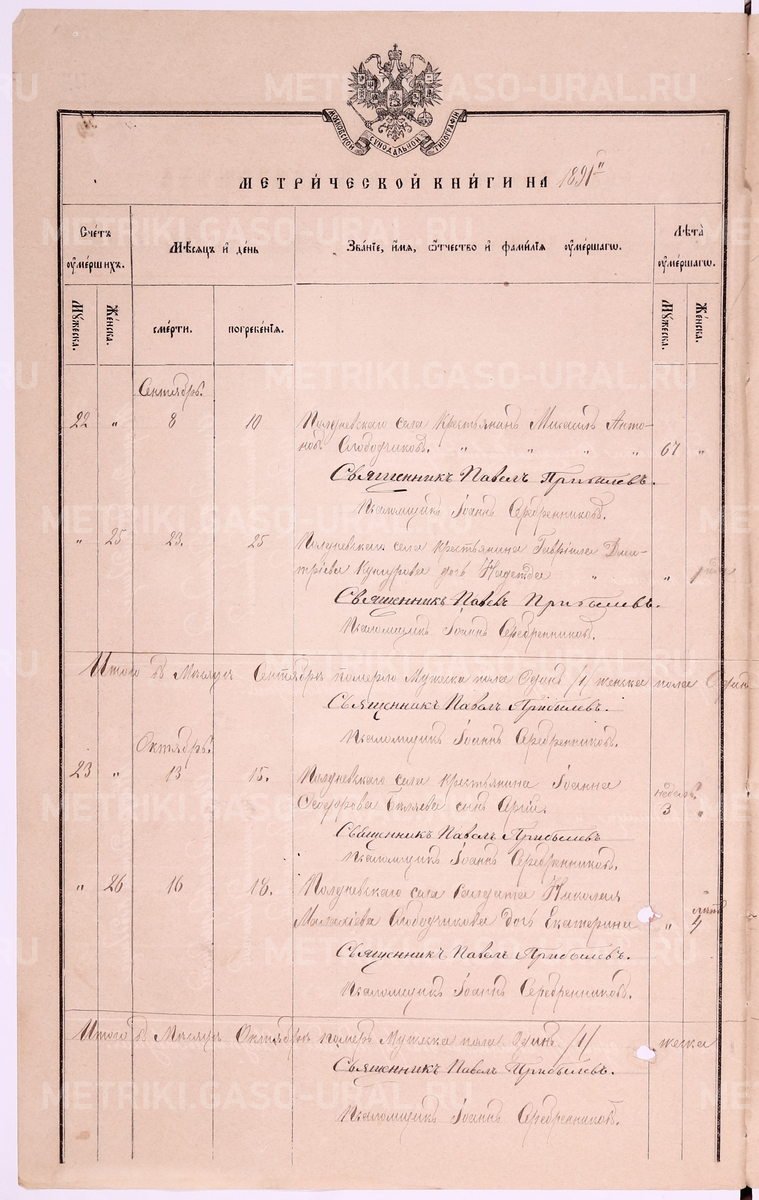 METRIKI.GASO-URAL.RU
МОСКОВСКОЙ СУНОДАЛЬНОЙ ТИПОГРАФІИ
МЕТРИ́ЧЕСКОЙ КНИ́ГИ НА 1891й
Сче́тъ ѹме́ршихъ.
Мѣ́сяцъ и де́нь
Зва́нїе, и́мя, ѻ́тчество и фами́лїя ѹме́ршагѡ.
Лѣта̀ ѹме́ршагѡ.
Мꙋ́жеска.
Же́нска.
сме́рти.
погребе́нїя.
Мꙋ́жеска.
Же́нска.
Сентябрь.
22 " 8 10 Полдневскаго села крестьянинъ Михаилъ Анто-
новъ Слободчиковъ. " " " " 67 "
Священникъ Павелъ Прибылевъ.
Псаломщикъ Іоаннъ Серебренниковъ.
" 25 23. 25 Полдневскаго села крестьянина Гавріила Дми-
тріева дочь Надежда " "
Священникъ Павелъ Прибылевъ.
Псаломщикъ Іоаннъ Серебренниковъ.
Итого въ Мѣсяцѣ Сентябрѣ померло Мужеска пола Одинъ /1/ женска пола Одна
Священникъ Павелъ Прибылевъ.
Псаломщикъ Іоаннъ Серебренниковъ.
Октябрь.
23 " 13 15. Полдневскаго села крестьянина Іоанна
Ѳеодорова Бѣляева сынъ Сергій. недѣль 3 "
Священникъ Павелъ Прибылевъ
Псаломщикъ Іоаннъ Серебренниковъ.
" 26 16 18. Полдневскаго села Солдата Николая
Малахіева Слободчикова дочь Екатерина " 4
Священникъ Павелъ Прибылевъ.
Псаломщикъ Іоаннъ Серебренниковъ.
Итого въ Мѣсяцѣ Октябрѣ померъ Мужеска пола Одинъ /1/ женска
Священникъ Павелъ Прибылевъ.
Псаломщикъ Іоаннъ Серебренниковъ.